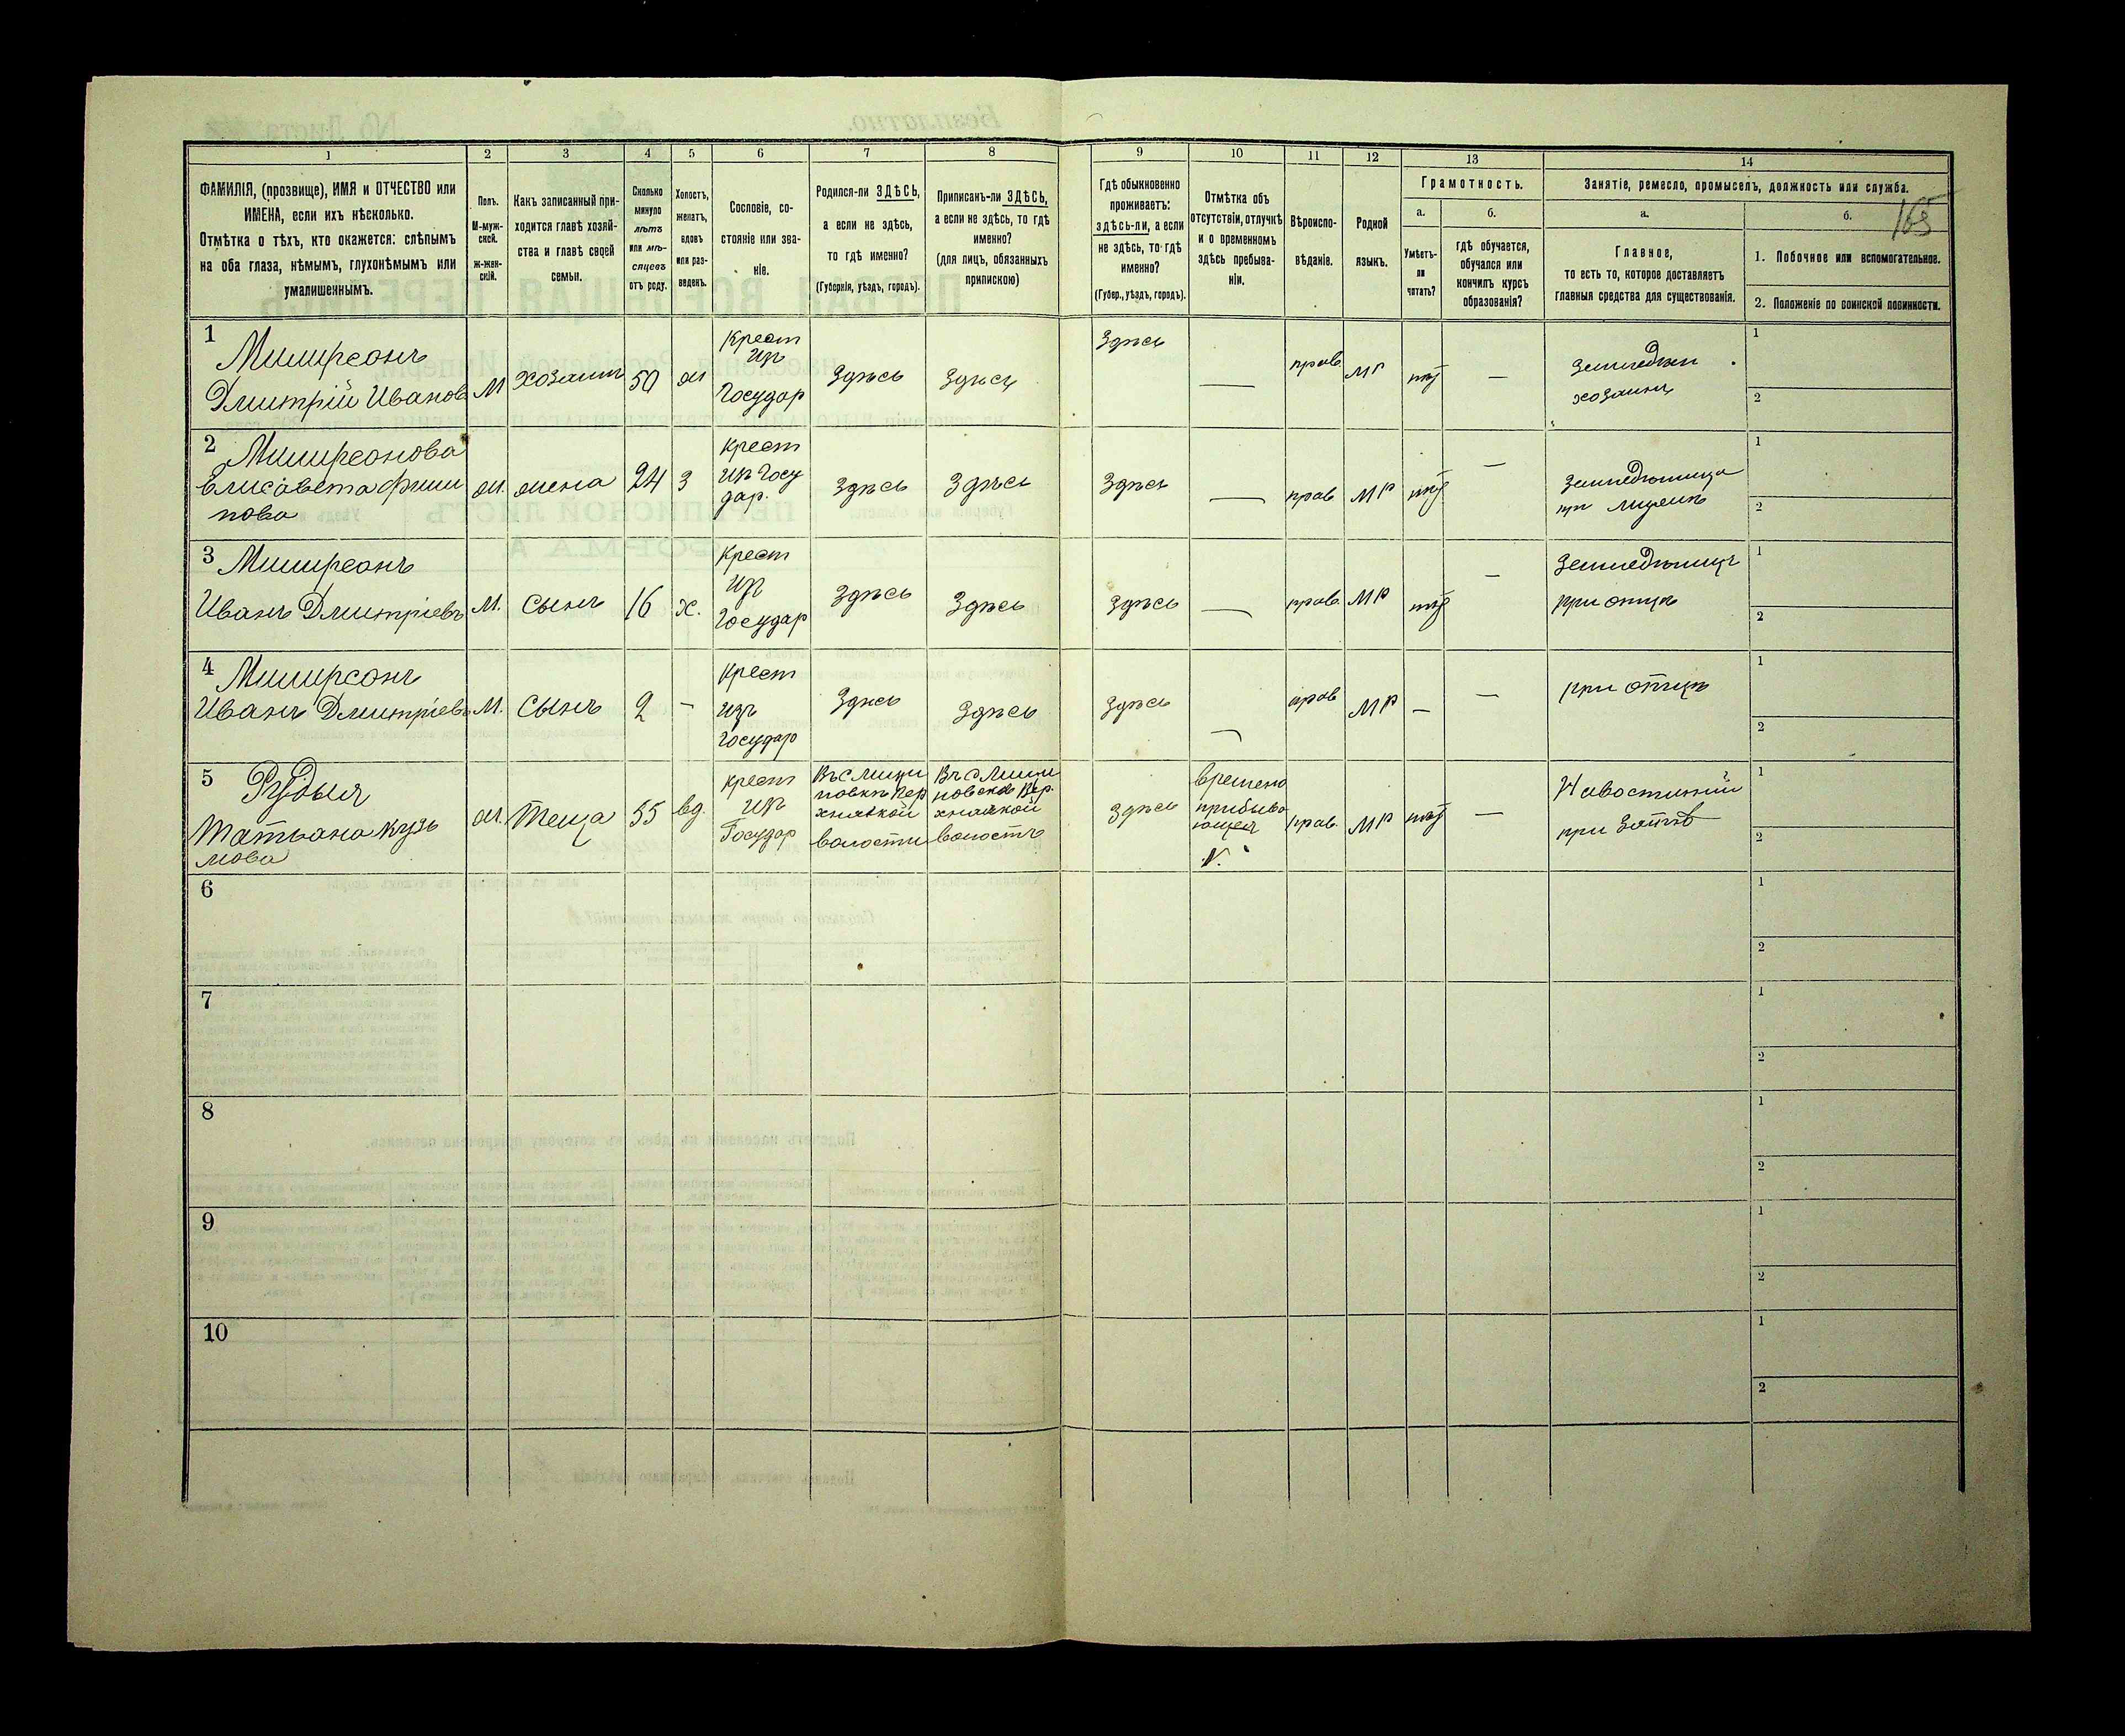 1 2 3 4 5 6 7 8 9 10 11 12 13 14
ФАМИЛІЯ, (прозвище), ИМЯ и ОТЧЕСТВО или
ИМЕНА, если ихъ нѣсколько.
Отмѣтка о тѣхъ, кто окажется: слѣпымъ
на оба глаза, нѣмымъ, глухонѣмымъ или
умалишеннымъ.
Полъ.
М-муж-
ской.
Ж-жен-
скій.
Какъ записанный при-
ходится главѣ хозяй-
ства и главѣ своей
семьи.
Сколько
минуло
лѣтъ
или мѣ-
сяцевъ
отъ роду.
Холостъ,
женатъ,
вдовъ
или раз-
веденъ.
Сословіе, со-
стояніе или зва-
ніе.
Родился-ли ЗДѢСЬ,
а если не здѣсь,
то гдѣ именно?
(Губернія, уѣздъ, городъ).
Приписанъ-ли ЗДѢСЬ,
а если не здѣсь, то гдѣ
именно?
(для лицъ, обязанныхъ
припискою)
Гдѣ обыкновенно
проживаетъ:
здѣсь-ли, а если
не здѣсь, то гдѣ
именно?
(Губер., уѣздъ, городъ).
Отмѣтка объ
отсутствіи, отлучкѣ
и о временномъ
здѣсь пребыва-
ніи.
Вѣроиспо-
вѣданіе.
Родной
языкъ.
Грамотность.
а.
Умѣетъ-
ли
читать?
б.
гдѣ обучается,
обучался или
кончилъ курсъ
образованія?
Занятіе, ремесло, промыселъ, должность или служба.
а.
Главное,
то есть то, которое доставляетъ
главныя средства для существованія.
б.
165
1. Побочное или вспомогательное.
2. Положеніе по воинской повинности.
1
Дмитрій Иванов
М
хозаинъ
50
ж
Крест
изъ
Государ
Здѣсь
Здѣсь
Здѣсь
—
прав.
МР
нѣт
—
хозаинъ
1
2
2
Елисавета Филип
пова
ж.
жена
24
З
Крест
изъ Госу
дар.
Здѣсь
Здѣсь
Здѣсь
—
прав
МР
нѣт
—
при мужѣ
1
2
3
Иванъ Дмитріевъ
М.
Сынъ
16
х.
Крест
изъ
Государ
Здѣсь
Здѣсь
Здѣсь
—
прав.
МР
нѣт
—
при отцѣ
1
2
4
Иванъ Дмитріевъ
М.
Сынъ
2
-
Крест
изъ
Государ
Здѣсь
Здѣсь
Здѣсь
—
прав
МР
—
—
при отцѣ
1
2
5
Татьяна Кузь
мова
ж.
Теща
55
вд.
Крест
изъ
Государ
волости
волости
Здѣсь
времено
прибыва
ющея
прав.
МР
нѣт
—
при Зятѣ
1
2
6
1
2
7
1
2
8
1
2
9
1
2
10
1
2